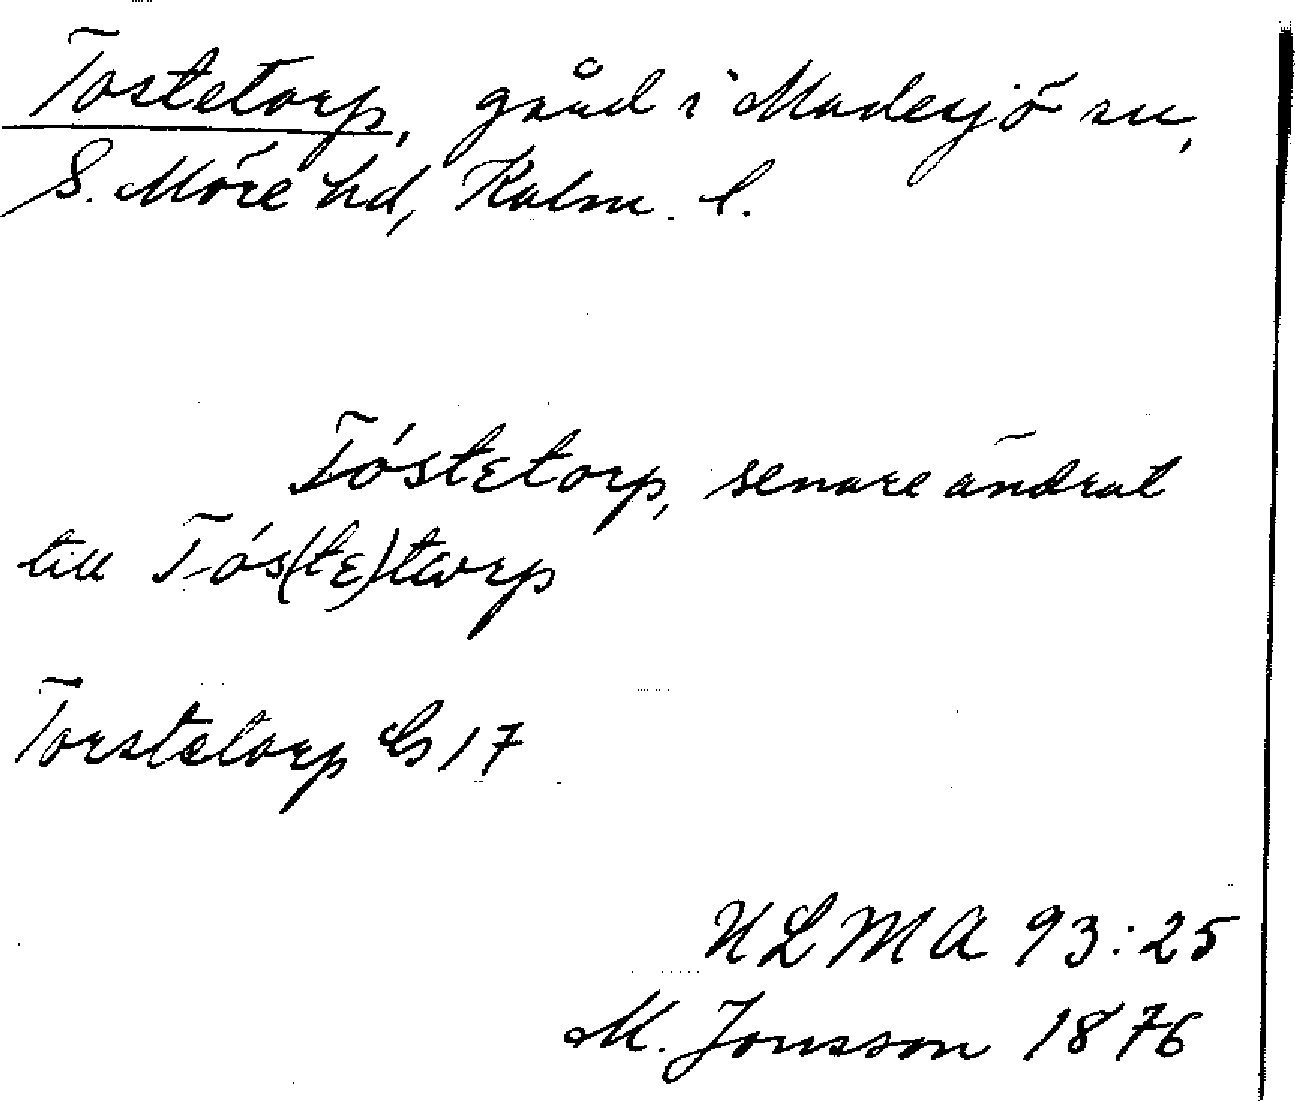 Tostetorp, gård i Madesjö sn,
S. Möre hd, Kalm. l.
Tóstɛtorp, senare ändrat
till Tós(tɛ)torp
Torstetorp G 17
ULMA 93:25
M. Jonsson 1876